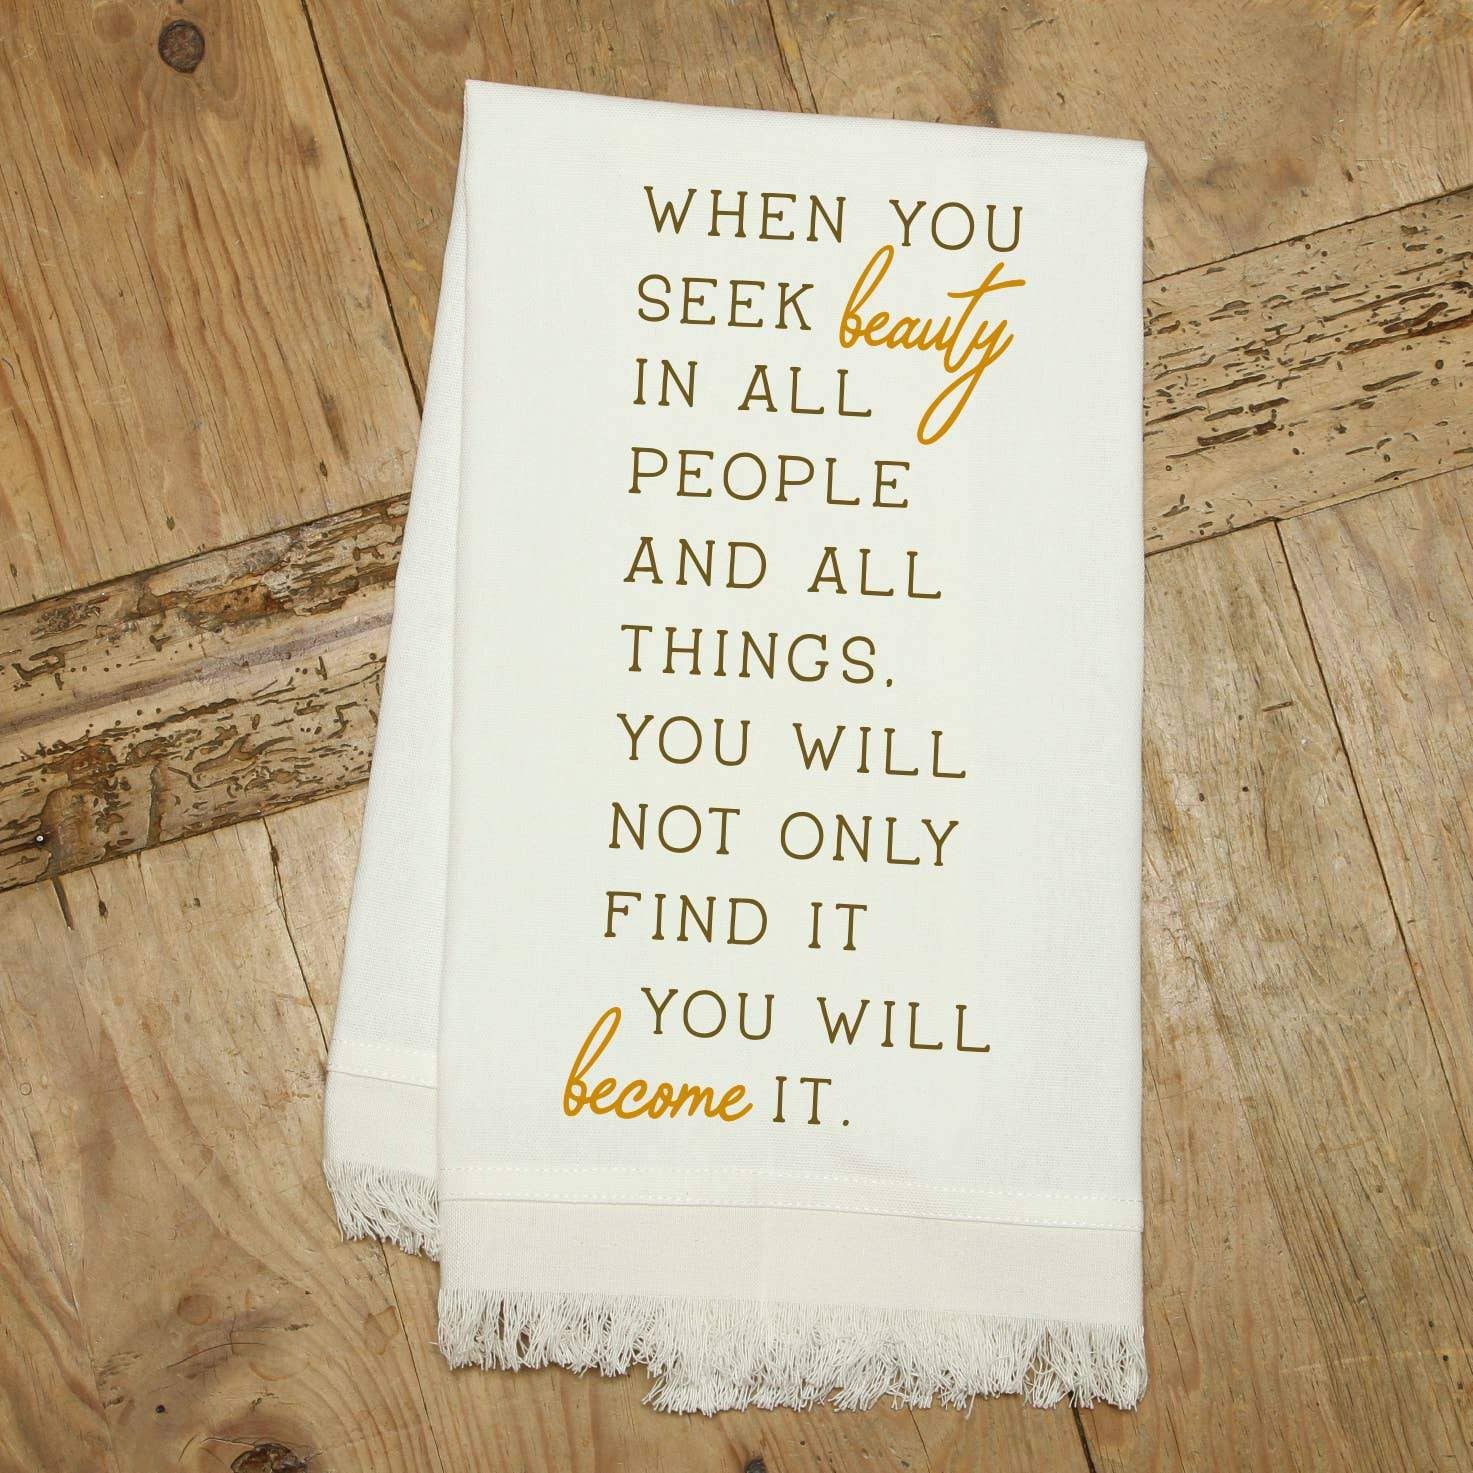 WHEN YOU
SEEK beauty
IN ALL
PEOPLE
AND ALL
THINGS,
YOU WILL
NOT ONLY
FIND IT
YOU WILL
become IT.